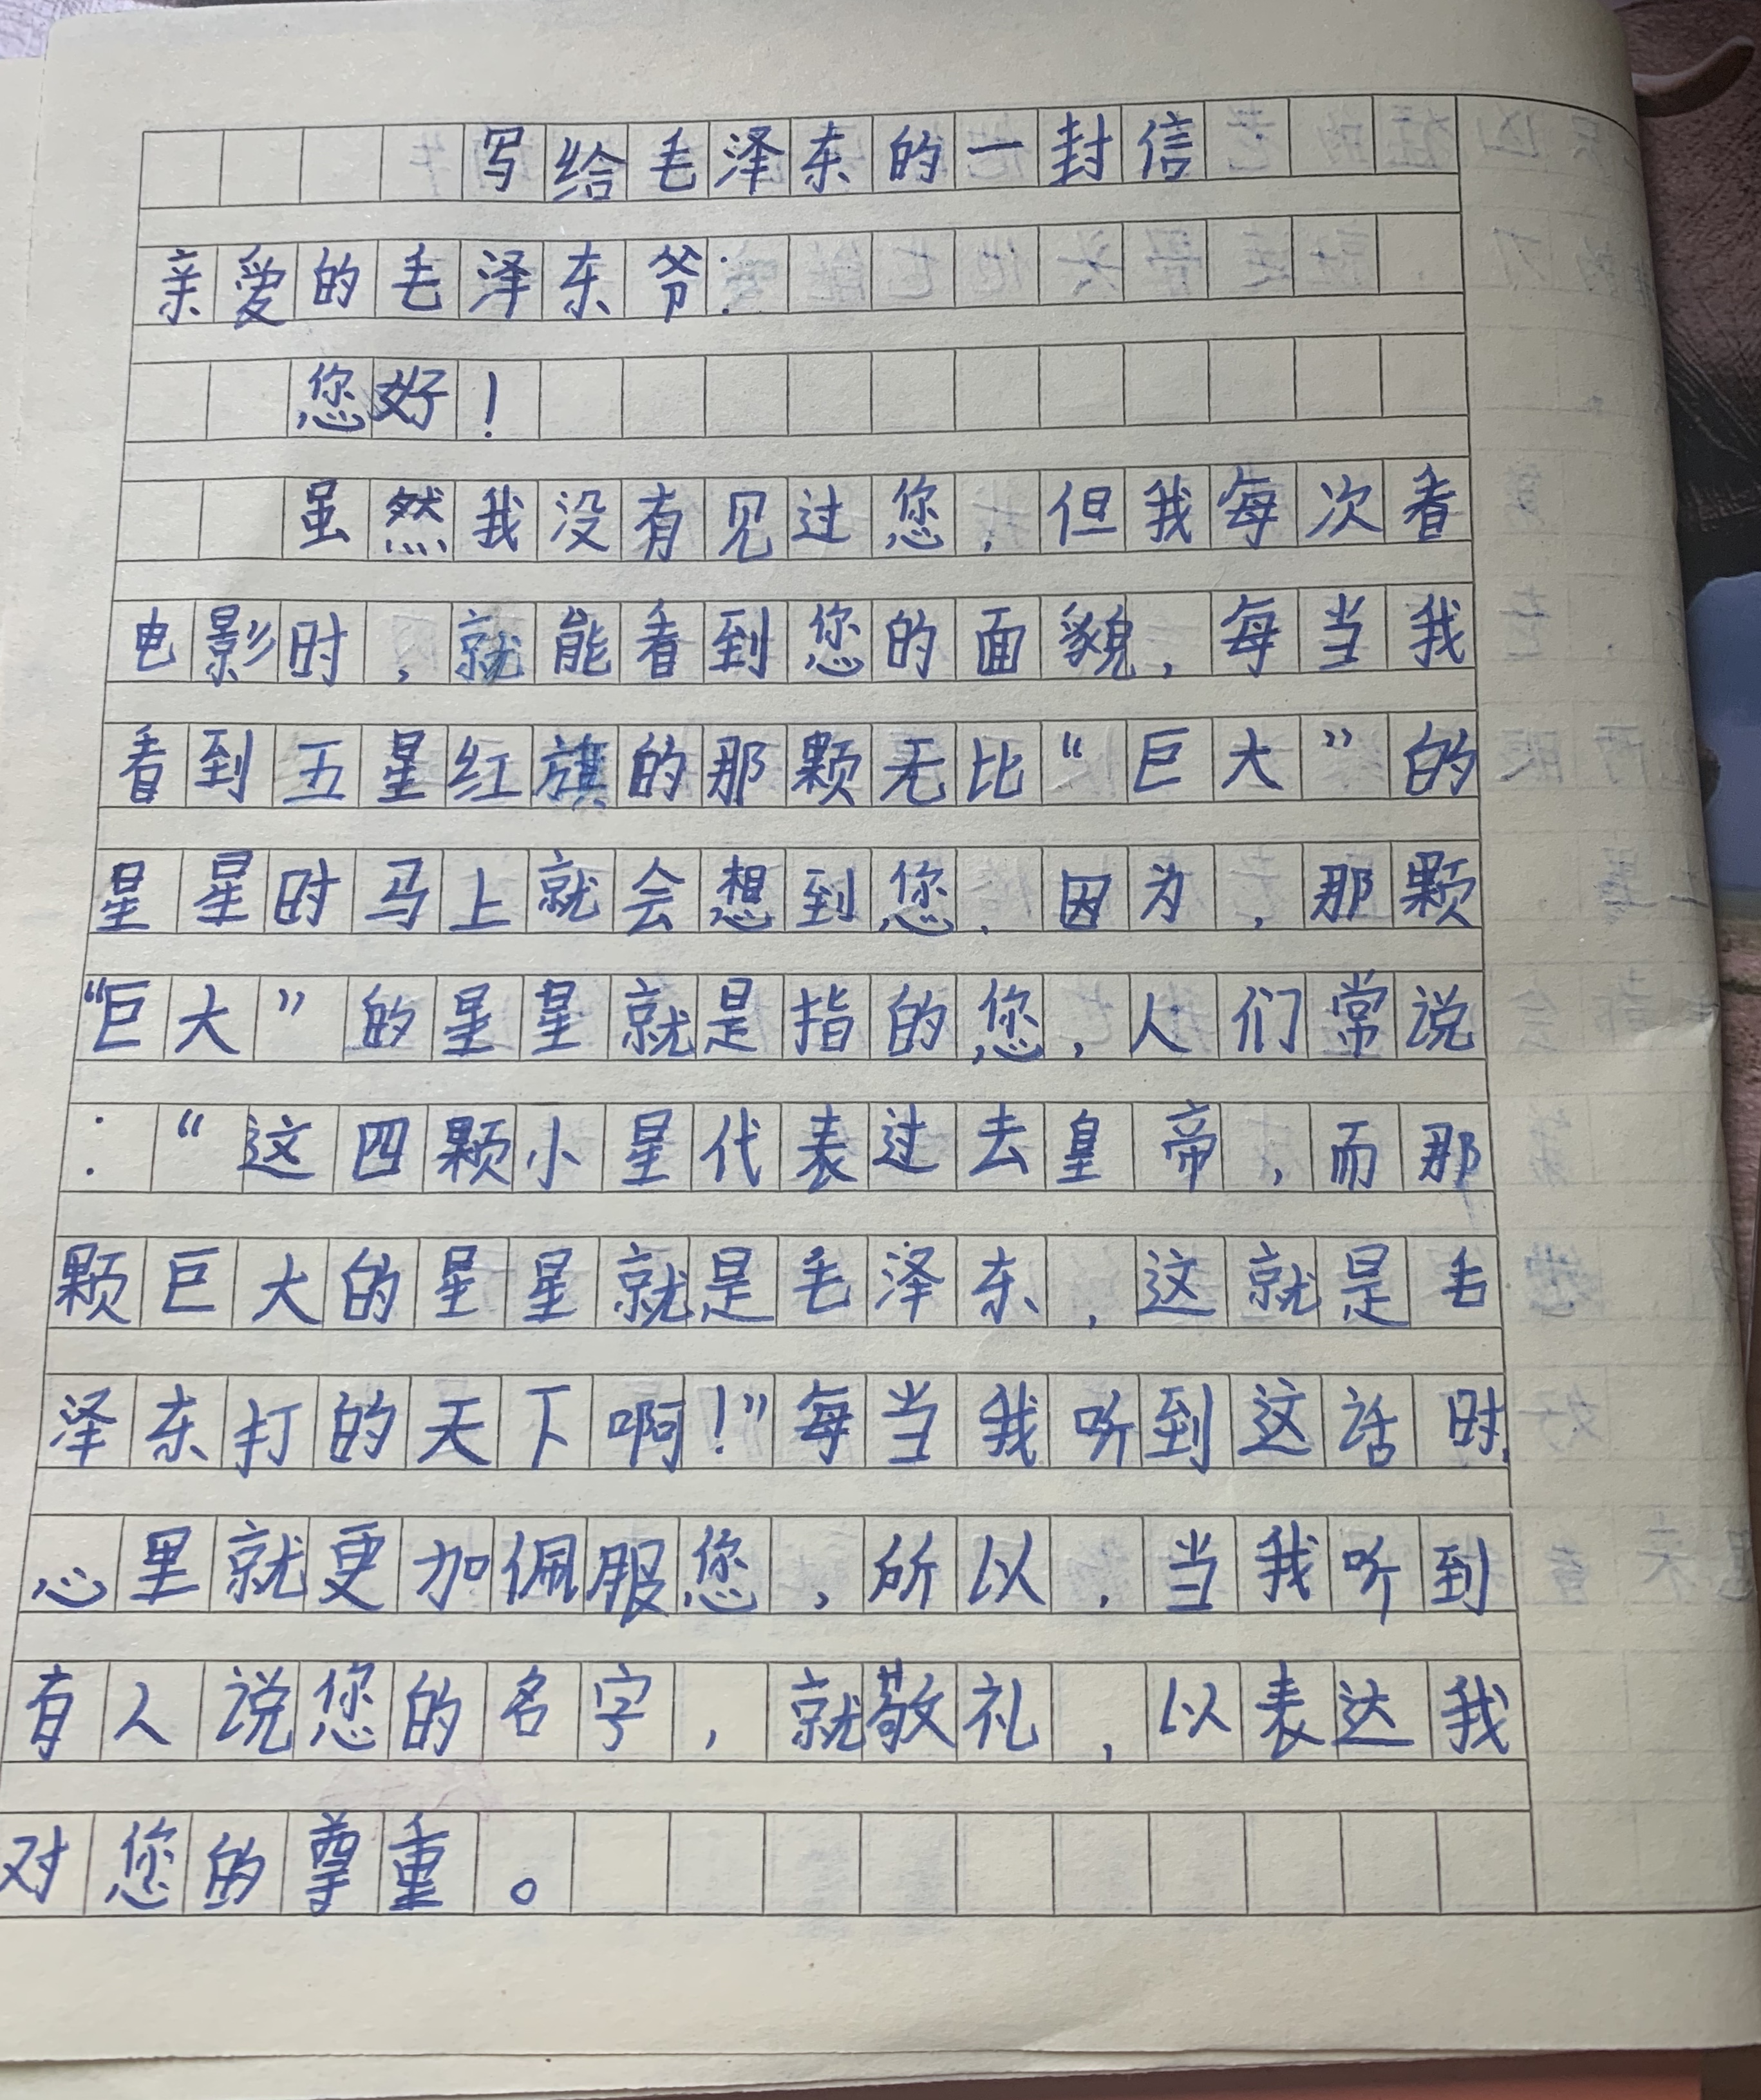 写给毛泽东的一封信
亲爱的毛泽东爷:
您好!
虽然我没有见过您,但我每次看
电影时,就能看到您的面貌,每当我
看到五星红旗的那颗无比“巨大”的
星星时马上就会想到您,因为,那颗
“巨大”的星星就是指的您,人们常说
:“这四颗小星代表过去皇帝,而那
颗巨大的星星就是毛泽东,这就是毛
泽东打的天下啊!”每当我听到这话时,
心里就更加佩服您,所以,当我听到
有人说您的名字,就敬礼,以表达我
对您的尊重。